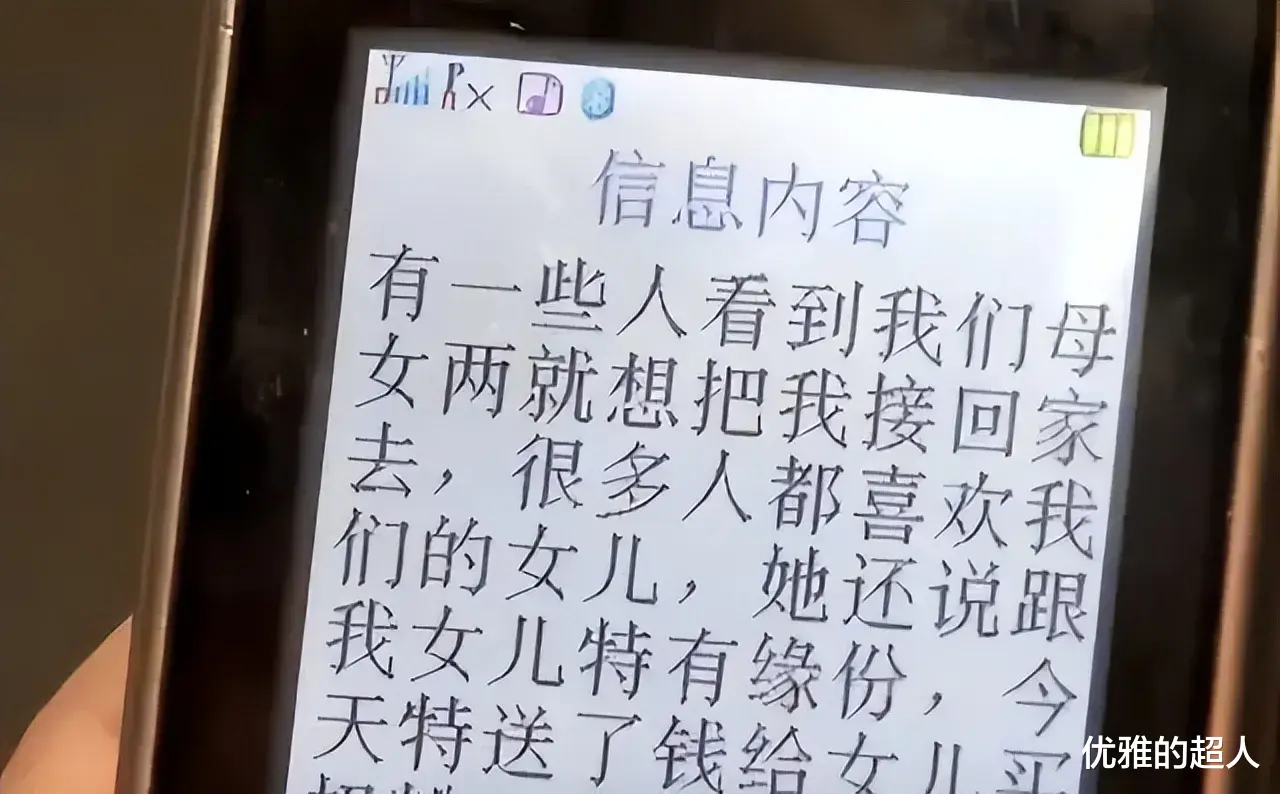 信息内容
有一些人看到我们母
女两就想把我接回家
去，很多人都喜欢我
们的女儿，她还说跟
我女儿特有缘份，今
天特送了钱给女儿买
优雅的超人